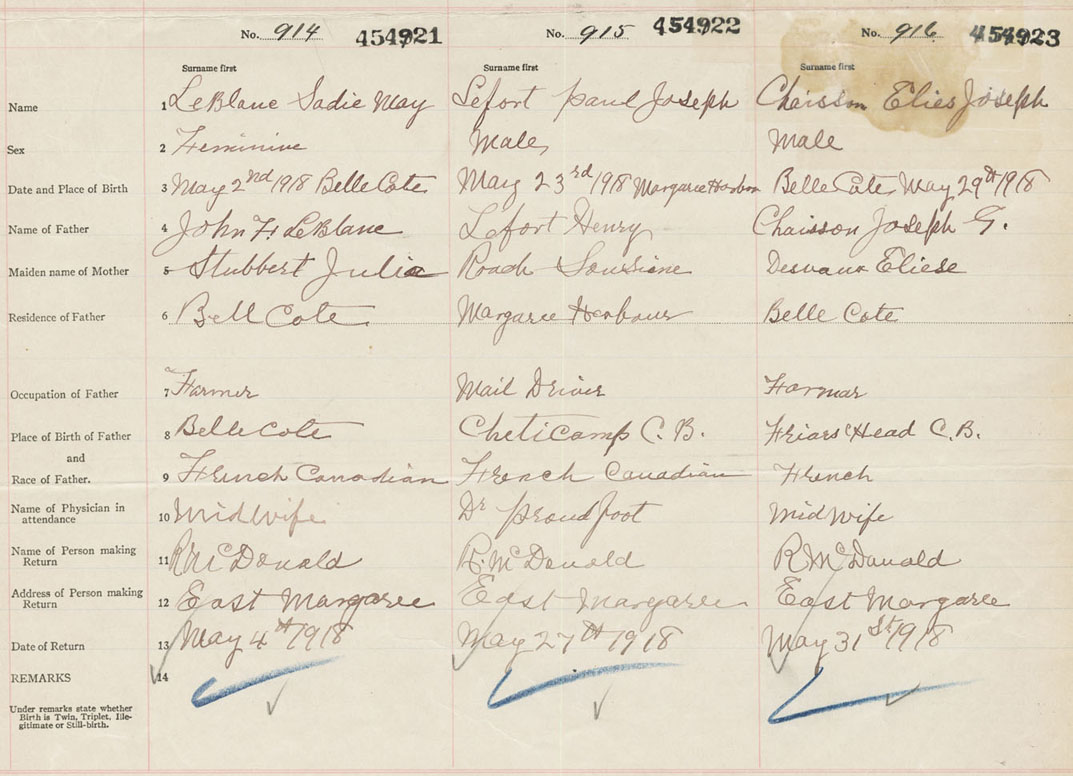 No. 914 454921 No. 915 454922 No. 916 454923
Surname first Surname first Surname first
Name 1 LeBlanc Sadie May Lefort paul Joseph Chaisson Elies Joseph
Sex 2 Feminine Male, Male
Date and Place of Birth 3 May 2nd 1918 Belle Cote May 23rd 1918 Margaree Harbor Belle Cote May 29th 1918
Name of Father 4 John F. LeBlanc Lefort Henry Chaisson Joseph G.
Maiden name of Mother 5 Stubbert Julia Roach Desvaux Eliese
Residence of Father 6 Bell Cote Margaree Harbour Belle Cote
Occupation of Father 7 Farmer Mail Driver Farmar
Place of Birth of Father 8 Belle Cote Cheticamp C.B. Friars Head C.B.
and
Race of Father. 9 French Canadian French Canadian French
Name of Physician in
attendance 10 Midwife Dr proudfoot Midwife
Name of Person making
Return 11 R McDonald R. McDonald R McDonald
Address of Person making
Return 12 East Margaree East Margaree East Margaree
Date of Return 13 May 4th 1918 May 27th 1918 May 31st 1918
REMARKS 14
Under remarks state whether
Birth is Twin, Triplet, Ille-
gitimate or Still-birth.